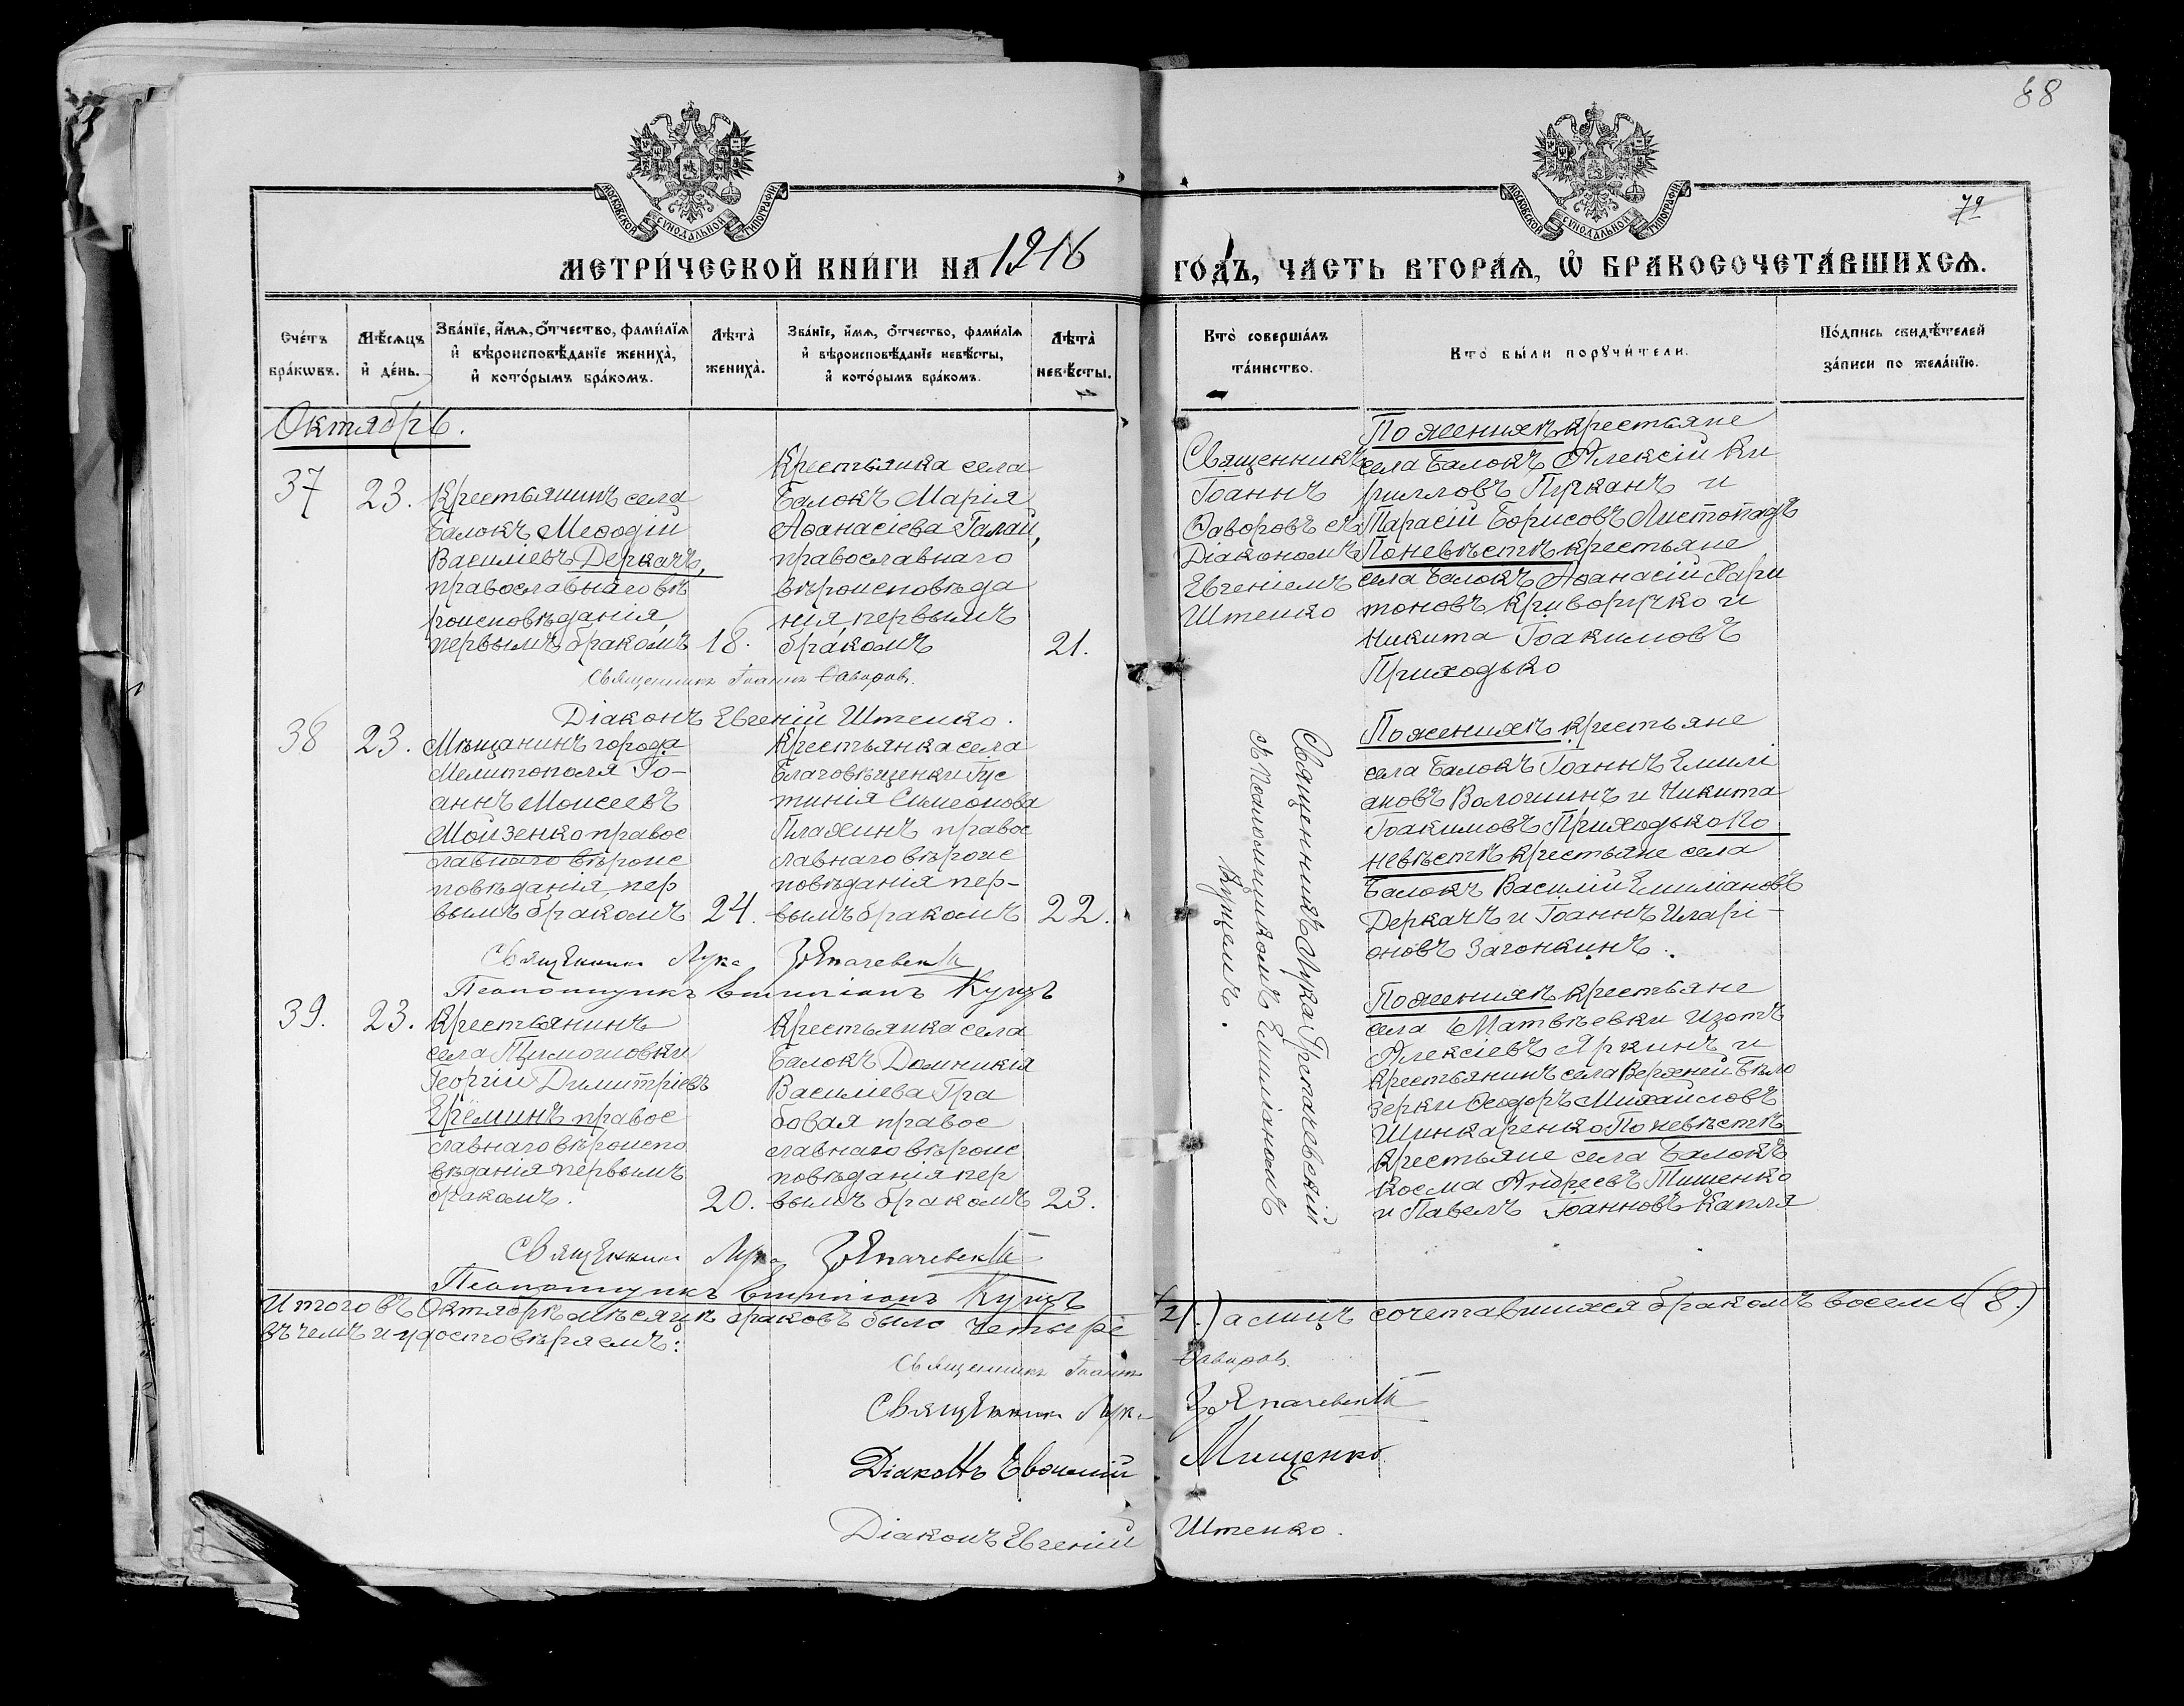 88
79
МОСКОВСКОЙ СѴНОДАЛЬНОЙ ТИПОГРАФІИ
МОСКОВСКОЙ СѴНОДАЛЬНОЙ ТИПОГРАФІИ
МЕТРИ́ЧЕСКОЙ КНИ́ГИ НА 1916 ГО́ДЪ, ЧАСТЬ ВТОРА́Я, Ѡ БРАКОСОЧЕТА́ВШИХСЯ.
Сче́тъ бра́кѡвъ.
Мѣ́сяцъ и҆ де́нь.
Зва́нїе, и҆́мя, о҆́тчество, фами́лїя и҆ вѣроисповѣ́данїе жениха̀, и҆ кото́рымъ бра́комъ.
Лѣта̀ жениха̀.
Зва́нїе, и҆́мя, о҆́тчество, фами́лїя и҆ вѣроисповѣ́данїе невѣ́сты, и҆ кото́рымъ бра́комъ.
Лѣта̀ невѣ́сты.
Кто̀ соверша́лъ та́инство.
Кто̀ бы́ли порꙋчи́тели.
По́дпись свидѣ́телей за́писи по жела́нїю.
Октябрь.
37
23.
Крестьянинъ села
Балокъ Меѳодій
Василіевъ Деркачъ,
православнаго вѣ
роисповѣданія,
первымъ бракомъ
18.
Крестьянка села
Балокъ Марія
Аѳанасіева Галай,
православнаго
вѣроисповѣда
нія, первымъ
бракомъ
21.
Священникъ
Іоаннъ
Ѳаворовъ съ
Діакономъ
Евгеніемъ
Штенко
По женихѣ крестьяне
села Балокъ Алексій Ки
рилловъ Пужанъ и
Тарасій Борисовъ Листопадъ
По невѣстѣ крестьяне
села Балокъ Аѳанасій Хари
тоновъ Криворучко и
Никита Іоакимовъ
Приходько
Священникъ Іоаннъ Ѳаворовъ.
Діаконъ Евгеній Штенко.
38
23.
Мѣщанинъ города
Мелитополя Іо-
аннъ Моисеевъ
Мойзенко правос
лавнаго вѣроис
повѣданія, пер
вымъ бракомъ
24.
Крестьянка села
Благовѣщенки Іус
тинія Симеонова
Плахинъ правос
лавнаго вѣроис
повѣданія пер-
вымъ бракомъ
22.
Священникъ Лука Грепачевскій
съ Псаломщикомъ Емиліаномъ
Куцемъ.
По женихѣ крестьяне
села Балокъ Іоаннъ Емилі
ановъ Волошинъ и Никита
Іоакимовъ Приходько По
невѣстѣ крестьяне села
Балокъ Василій Емиліановъ
Деркачъ и Іоаннъ Иларі-
оновъ Загонкинъ.
Священникъ Лука Грепачевскій
Псаломщикъ Емиліанъ Куцъ
39.
23.
Крестьянинъ
села Тимошовки
Георгій Димитріевъ
Ерёминъ правос
лавнаго вѣроиспо
вѣданія первымъ
бракомъ.
20.
Крестьянка села
Балокъ Домникія
Василіева Гра
бовая правос
лавнаго вѣроис
повѣданія пер
вымъ бракомъ
23.
По женихѣ крестьяне
села Матвѣевки Изотъ
Алексіевъ Яркинъ и
крестьянинъ села Верхней Бѣло
зерки Ѳеодоръ Михайловъ
Шинкаренко По невѣстѣ
крестьяне села Балокъ
Косма Андреевъ Тищенко
и Павелъ Іоанновъ Капля
Священникъ Лука Грепачевскій
Псаломщикъ Емиліанъ Куцъ
Итого въ Октябрѣ мѣсяцѣ браковъ было четыре (4.) а лицъ сочетавшихся бракомъ восемь (8.)
въ чемъ и удостовѣряемъ:
Священникъ Іоаннъ Ѳаворовъ.
Священникъ Лука Грепачевскій
Діаконъ Евѳимій Мищенко
Діаконъ Евгеній Штенко.